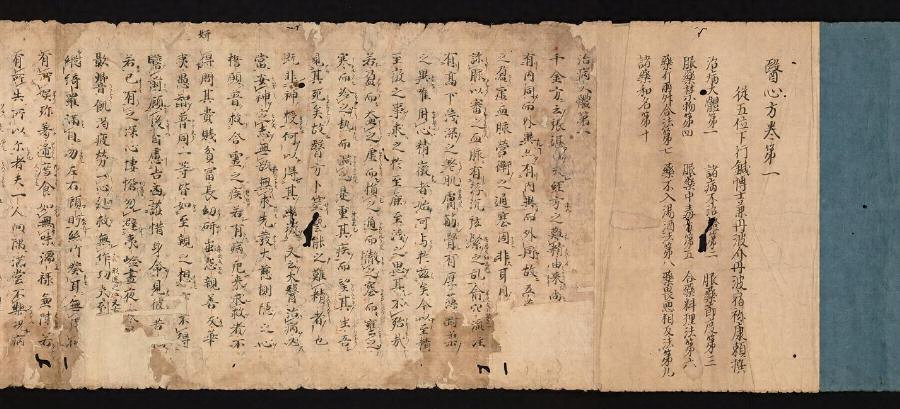 醫心方卷第一
從五位下行鍼博士兼丹波介丹波宿祢康頼撰
治病大體第一 諸病不治第二 服藥節度第三
服藥禁物第四 服藥中毒第五 合藥料理法第六
藥斤兩升合法第七 藥不入湯酒第八 藥畏惡相反法第九
諸藥和名第十
治病大體第一
千金方云張湛曰夫經方之難精由來尚
有內同而外異亦有內異而外同故五
之盈虛血脈營衛之通塞固非耳目
診脈以審一血脈有浮沈絃緊之
有高下淺深之差肌膚筋骨有厚薄剛柔
之異唯用心精微者始可与於茲矣今以至精
至微之事求之於至麁至淺之思其不殆哉
若盈而益之虛而損之通而徹之塞而壅之
寒而冷之熱而溫之是重其疾而望其生吾
見其死矣故醫方卜筮藝能之難精者也
既非神授何以得其幽微又云大醫治病必
當安神定志無欲無求先發大慈惻隱之心
誓願普救含靈之疾若有病厄來求救者不
得問其貴賤貧富長幼妍蚩怨親善友華
夷愚智普同一等皆如至親之想 不得
瞻前顧後自慮吉凶護惜身命見彼苦
若己有之深心悽愴勿避 晝夜寒
飢渴疲勞一心赴救無作功夫形
綺羅滿目勿左右顧眄絲竹湊耳無
有 珍羞遞薦食如無味醽醁兼陳看
有 所以尓者夫一人向隅滿堂不樂況病